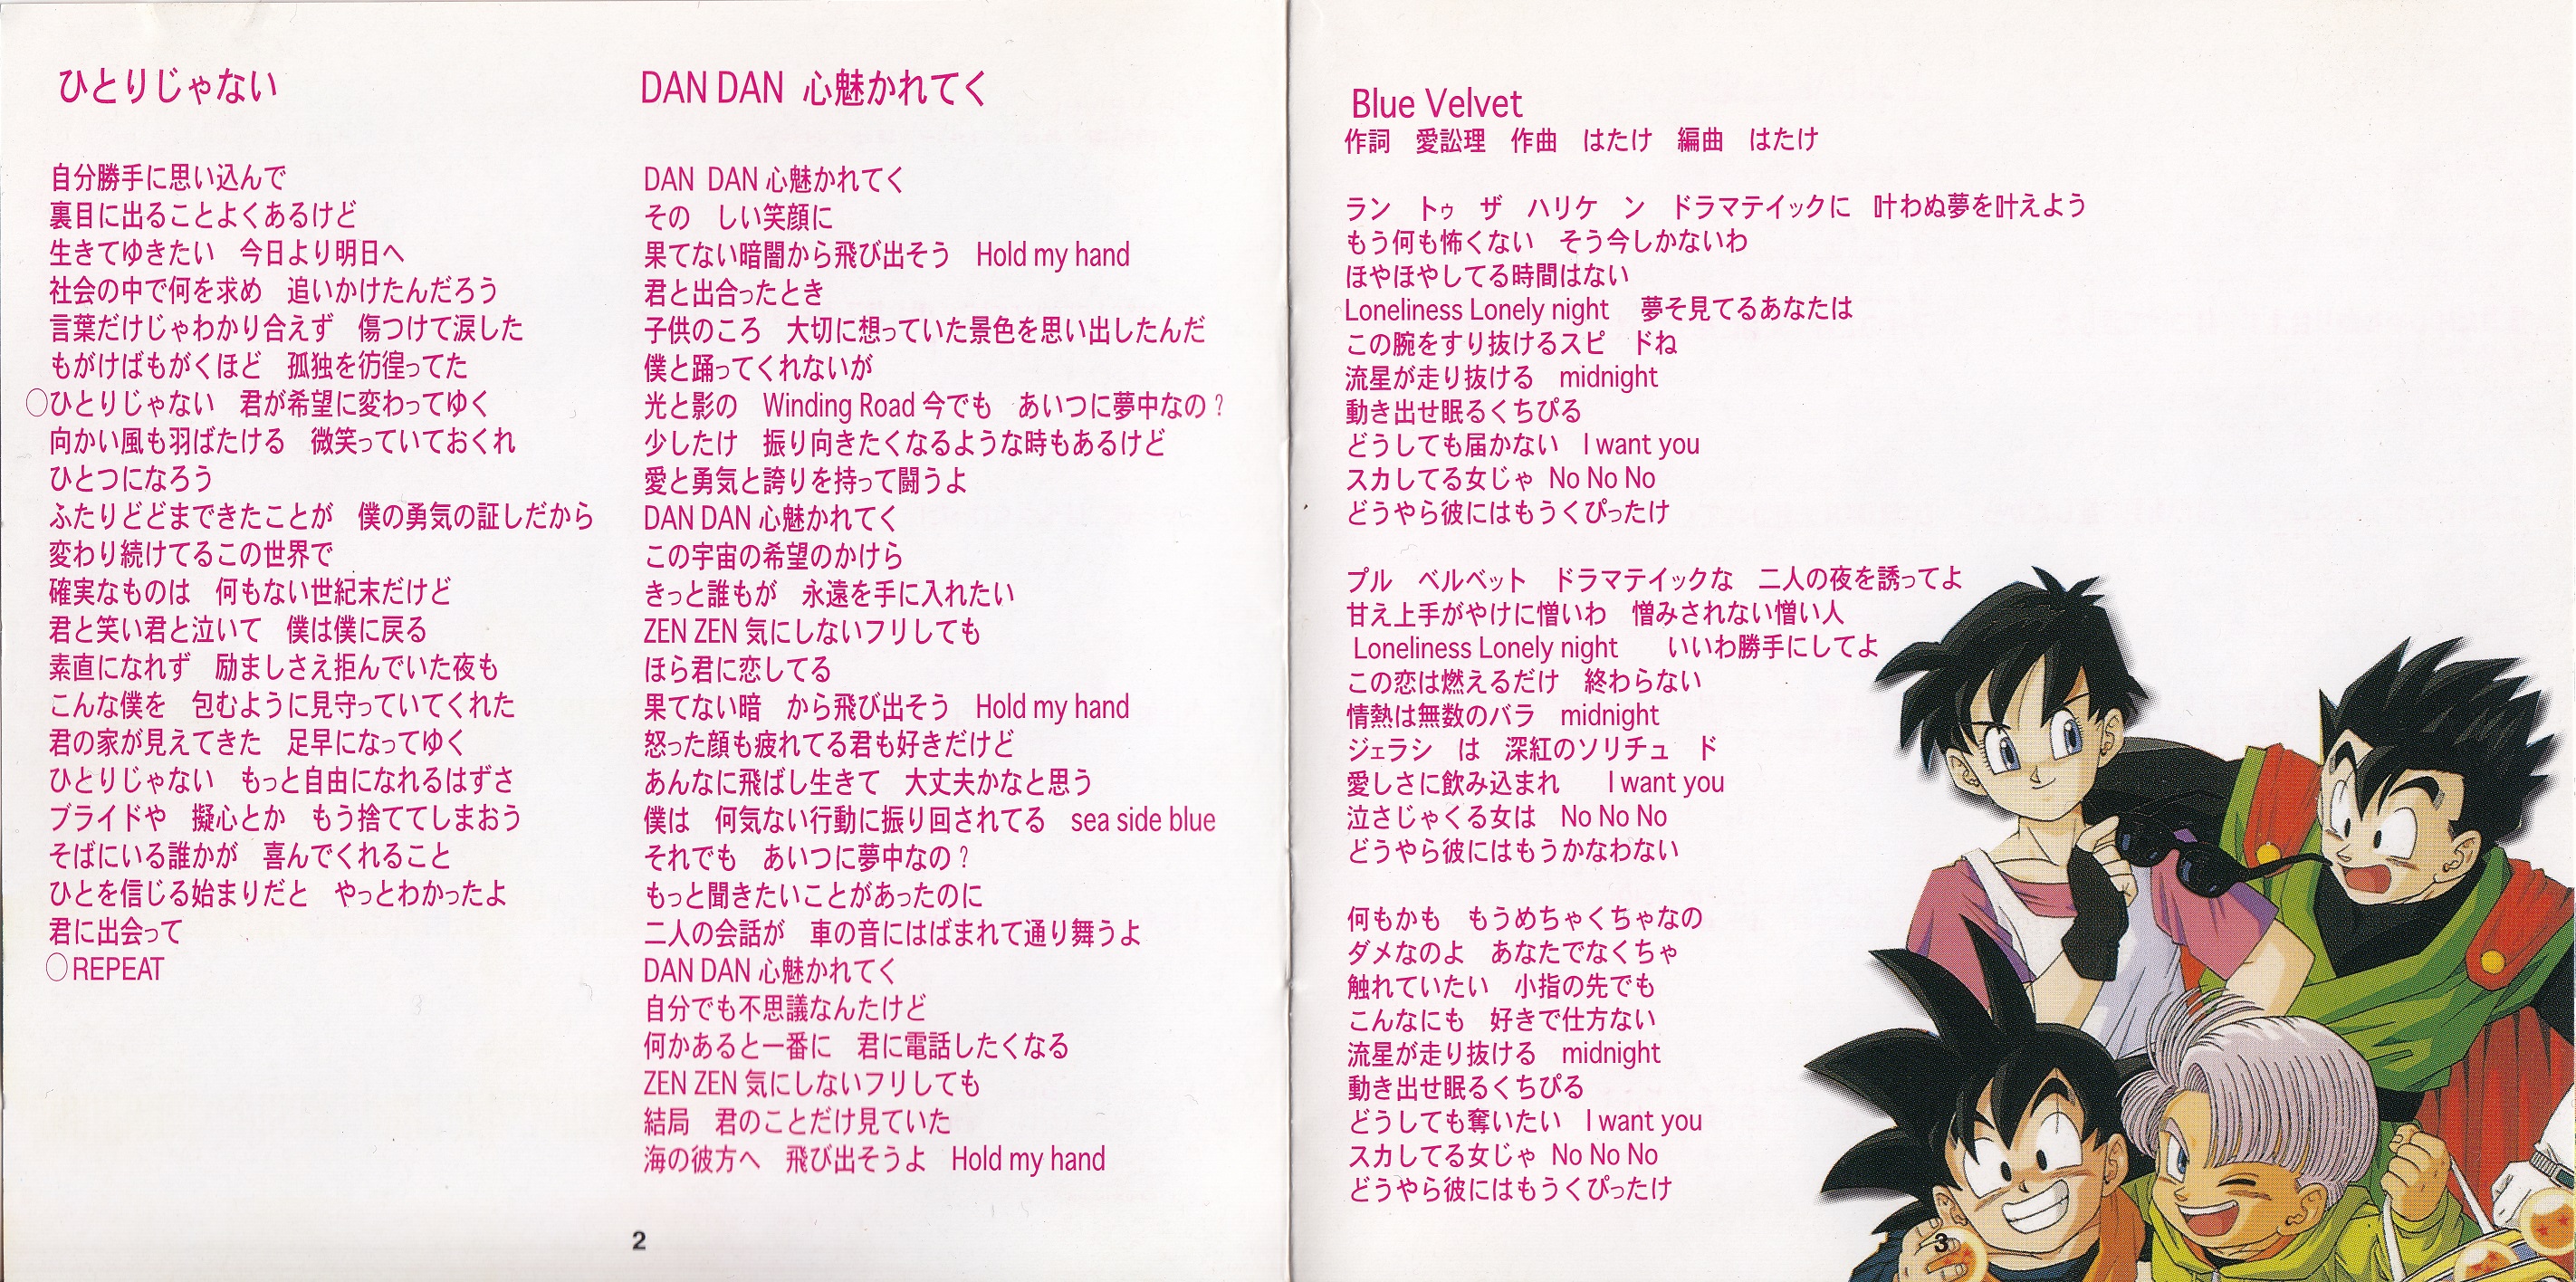 ひとりじゃない
自分勝手に思い込んで
裏目に出ることよくあるけど
生きてゆきたい　今日より明日へ
社会の中で何を求め　追いかけたんだろう
言葉だけじゃわかり合えず　傷つけて涙した
もがけばもがくほど　孤独を彷徨ってた
○ひとりじゃない　君が希望に変わってゆく
向かい風も羽ばたける　微笑っていておくれ
ひとつになろう
ふたりどどまできたことが　僕の勇気の証しだから
変わり続けてるこの世界で
確実なものは　何もない世紀末だけど
君と笑い君と泣いて　僕は僕に戻る
素直になれず　励ましさえ拒んでいた夜も
こんな僕を　包むように見守っていてくれた
君の家が見えてきた　足早になってゆく
ひとりじゃない　もっと自由になれるはずさ
ブライドや　擬心とか　もう捨ててしまおう
そばにいる誰かが　喜んでくれること
ひとを信じる始まりだと　やっとわかったよ
君に出会って
○REPEAT
DAN DAN 心魅かれてく
DAN DAN 心魅かれてく
その　しい笑顔に
果てない暗闇から飛び出そう　Hold my hand
君と出合ったとき
子供のころ　大切に想っていた景色を思い出したんだ
僕と踊ってくれないが
光と影の　Winding Road 今でも　あいつに夢中なの？
少したけ　振り向きたくなるような時もあるけど
愛と勇気と誇りを持って闘うよ
DAN DAN 心魅かれてく
この宇宙の希望のかけら
きっと誰もが　永遠を手に入れたい
ZEN ZEN 気にしないフリしても
ほら君に恋してる
果てない暗　から飛び出そう　Hold my hand
怒った顔も疲れてる君も好きだけど
あんなに飛ばし生きて　大丈夫かなと思う
僕は　何気ない行動に振り回されてる　sea side blue
それでも　あいつに夢中なの？
もっと聞きたいことがあったのに
二人の会話が　車の音にはばまれて通り舞うよ
DAN DAN 心魅かれてく
自分でも不思議なんたけど
何かあると一番に　君に電話したくなる
ZEN ZEN 気にしないフリしても
結局　君のことだけ見ていた
海の彼方へ　飛び出そうよ　Hold my hand
2
Blue Velvet
作詞　愛訟理　作曲　はたけ　編曲　はたけ
ラン　トゥ　ザ　ハリケ　ン　ドラマテイックに　叶わぬ夢を叶えよう
もう何も怖くない　そう今しかないわ
ほやほやしてる時間はない
Loneliness Lonely night　夢そ見てるあなたは
この腕をすり抜けるスピ　ドね
流星が走り抜ける　midnight
動き出せ眠るくちぴる
どうしても届かない　I want you
スカしてる女じゃ No No No
どうやら彼にはもうくぴったけ
プル　ベルベット　ドラマテイックな　二人の夜を誘ってよ
甘え上手がやけに憎いわ　憎みされない憎い人
Loneliness Lonely night　いいわ勝手にしてよ
この恋は燃えるだけ　終わらない
情熱は無数のバラ　midnight
ジェラシ　は　深紅のソリチュ　ド
愛しさに飲み込まれ　I want you
泣さじゃくる女は　No No No
どうやら彼にはもうかなわない
何もかも　もうめちゃくちゃなの
ダメなのよ　あなたでなくちゃ
触れていたい　小指の先でも
こんなにも　好きで仕方ない
流星が走り抜ける　midnight
動き出せ眠るくちぴる
どうしても奪いたい　I want you
スカしてる女じゃ No No No
どうやら彼にはもうくぴったけ
3